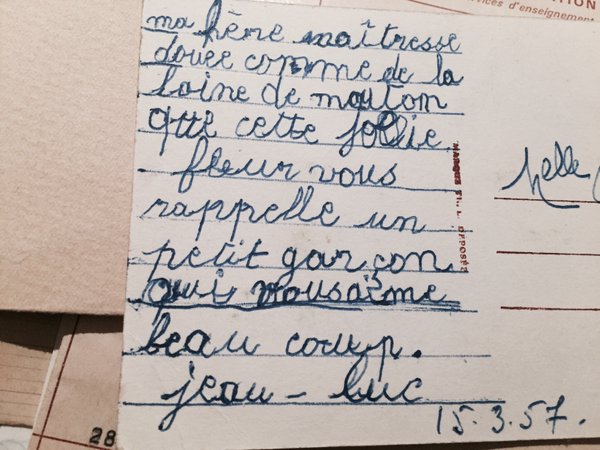 TION
vices d'enseignement
ma hère maîtresse
douce comme de la
laine de mouton
que cette jollie
fleur vous
rappelle un
petit garçon
qui vous aime
beau coup.
jean - luc
15.3.57.
Melle
DEPOSÉE
28